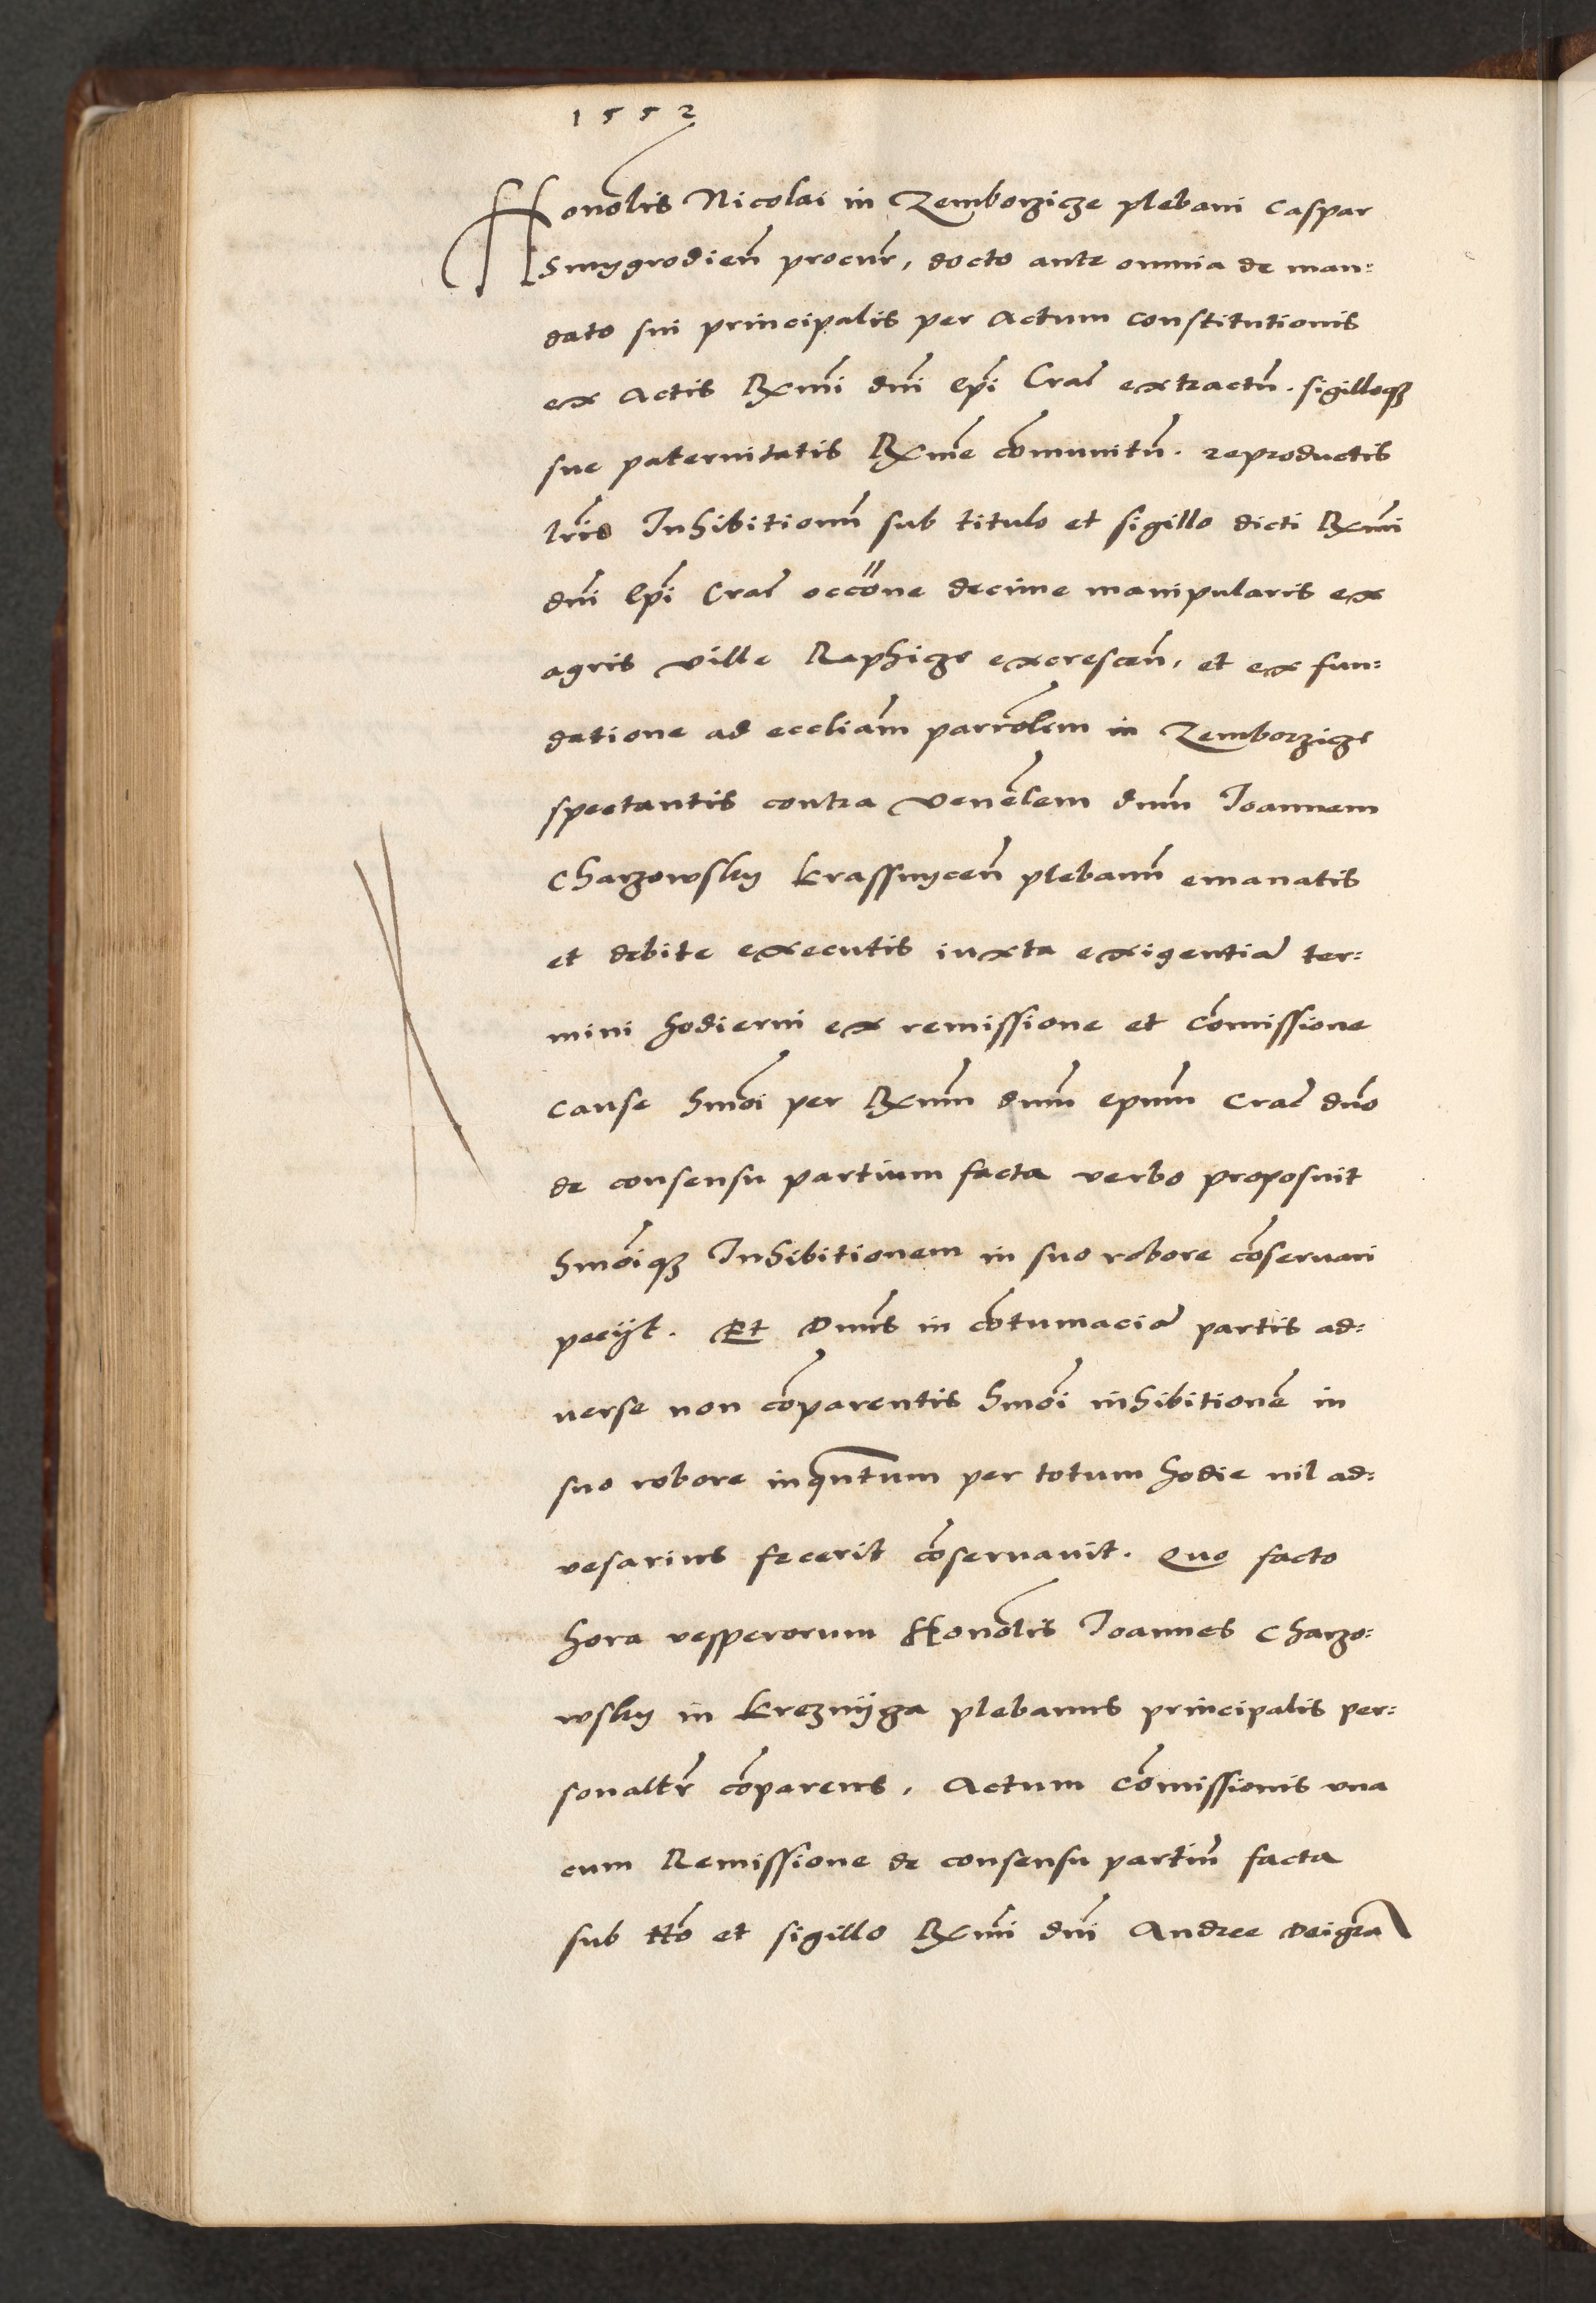 1552
Honolis Nicolai in Zemborzicze plebani Caspar
Smygrodien̄ procur̄, docto ante omnia de man:
dato sui principalis per Actum constitutionis
ex Actis Rx̄mi dn̄i Ep̄i Crac̄ extractū. sigilloqȝ
sue paternitatis Rx̄me cōmunitū. reproductis
lr̄is Inhibitionū sub titulo et sigillo dicti Rx̄mi
dn̄i Ep̄i Crac̄ occōne decime manipularis ex
agris ville Raphicze excrescen̄, et ex fun:
datione ad eccliam̄ parrōlem in Zemborzicze
spectantis contra venēlem dnūm Joannem
Charzowsky Krassnycen̄ plebanū emanatis
et debite executis iuxta exigentiā ter:
mini hodierni ex remissione et cōmissione
cause hmōi per Rx̄mum dnūm epūm Crac̄ dn̄o
de consensu partium facta verbo proposuit
hmōiqȝ Inhibitionem in suo robore cōservari
peciit. Et Dnūs in cōtumaciā partis ad:
verse non cōparentis hmōi inhibitionē in
suo robore inqūntum per totum hodie nil ad:
vesarius fecerit cōservavit. Quo facto
hora vesperorum Honōlis Joannes Charzo:
wsky in Kreznijcza plebanus principalis per:
sonaltr̄ cōparens, Actum Cōmissionis una
cum Remissione de consensu partiū facta
sub ttō et sigillo Rx̄mi dn̄i Andree Deigrā